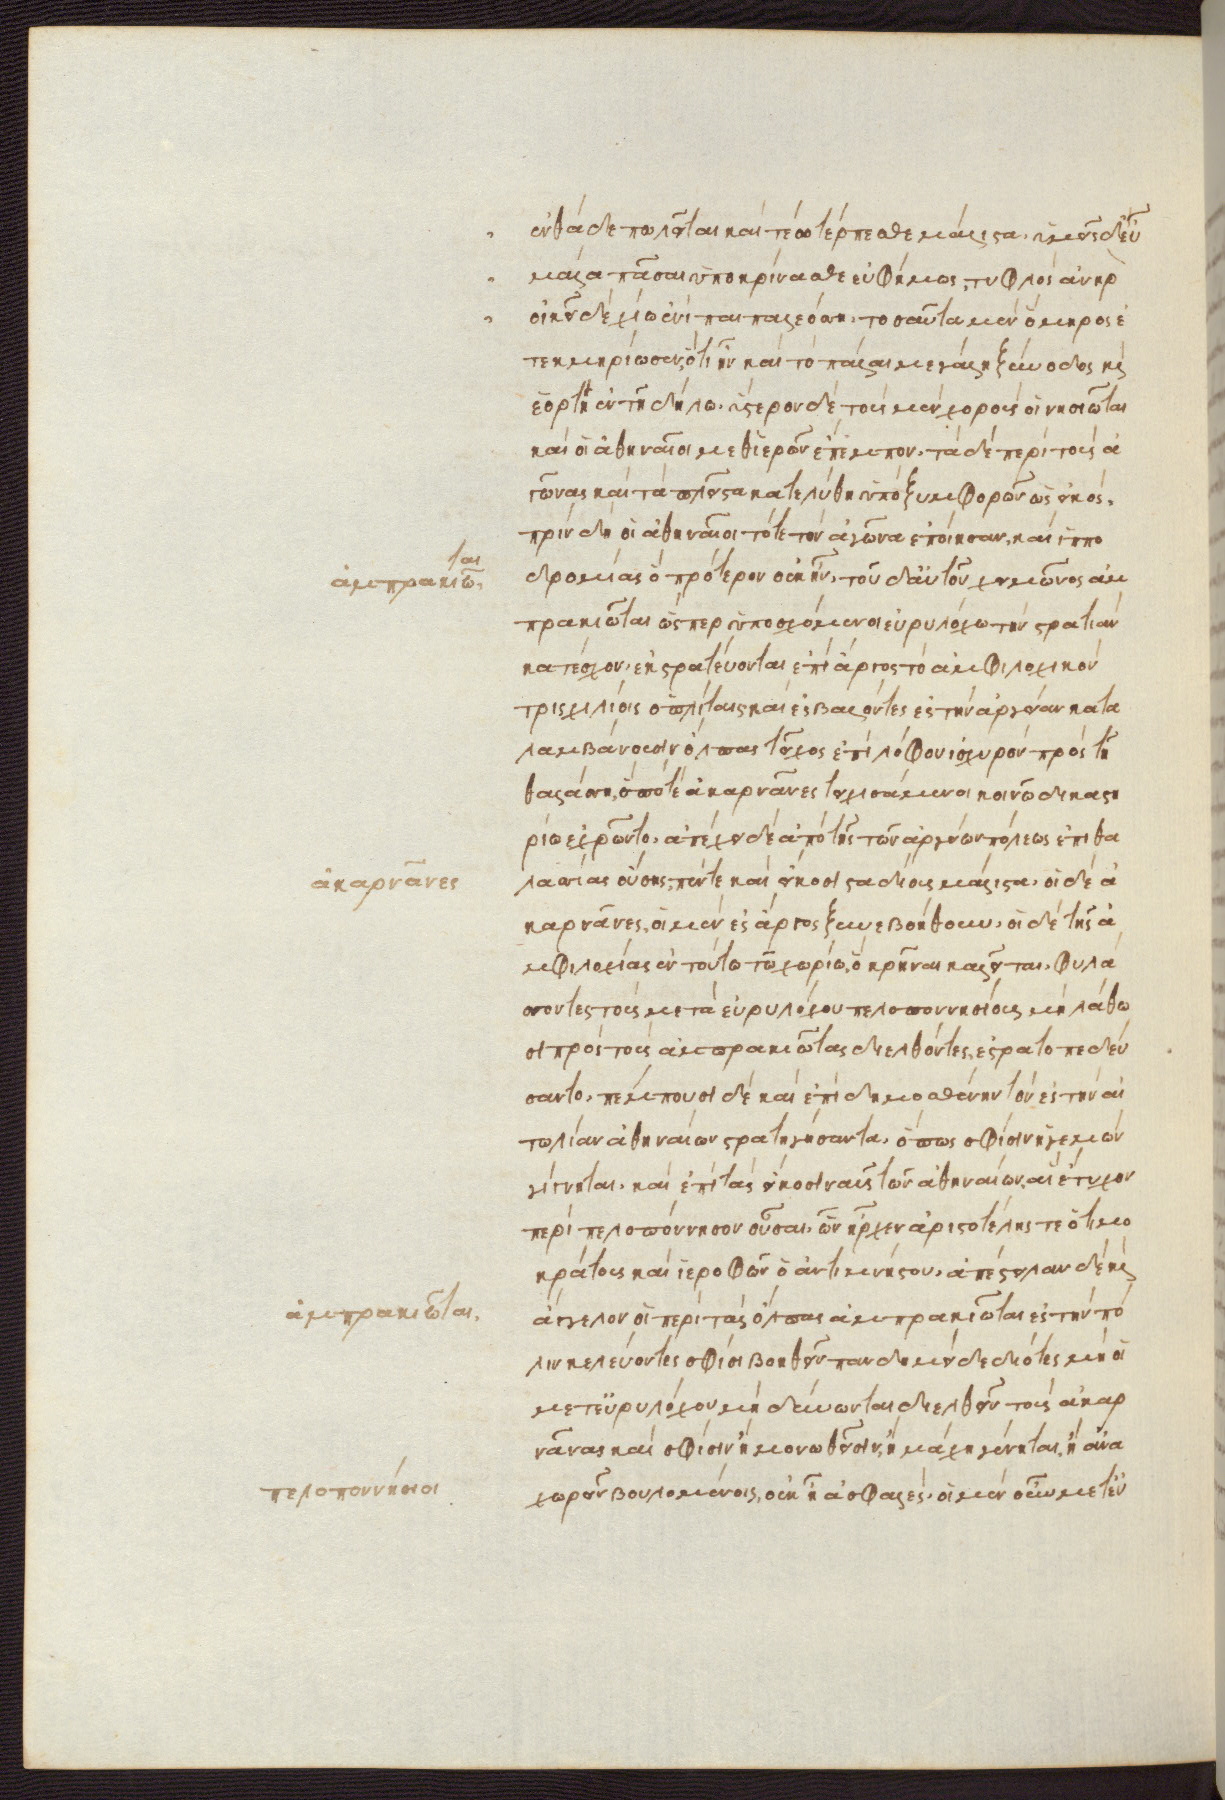 ἐνθάδε πωλεῖται καὶ τέῳ τέρπεσθε μάλιστα. ὑμεῖς δ' εὖ
μάλα πᾶσαι ὑποκρίνασθε εὐφήμως, τυφλὸς ἀνὴρ
οἰκεῖ δὲ χίῳ ἐνὶ παιπαλοέσση. τοσαῦτα μὲν ὅμηρος ἐ
τεκμηρίωσεν, ὅτι ἦν καὶ τὸ πάλαι μεγάλη ξύνοδος καὶ
ἑορτὴ ἐν τῇ δήλω. ὕστερον δὲ τοὺς μὲν χοροὺς οἱ νησιῶται
καὶ οἱ ἀθηναῖοι μεθ' ἱερῶν ἔπεμπον. τὰ δὲ περὶ τοὺς ἀ
γῶνας καὶ τὰ πλεῖστα κατελύθη ὑπὸ ξυμφορῶν ὡς εἰκός.
πρὶν δὴ οἱ ἀθηναῖοι τότε τὸν ἀγῶνα ἐποίησαν, καὶ ἱππο
δρομίας ὃ πρότερον οὐκ ἦν. τοῦ δ' αὐτοῦ χειμῶνος ἀμ
ἀμπρακιῶται.
πρακιῶται ὥσπερ ὑποσχόμενοι εὐρυλόχω τὴν στρατιὰν
κατέσχον, ἐκστρατεύονται ἐπὶ ἄργος τὸ ἀμφιλοχικὸν
τρισχιλίοις ὁπλίταις, καὶ ἐσβαλόντες ἐς τὴν ἀργείαν κατα
λαμβάνουσιν ὄλπας τεῖχος ἐπὶ λόφου ἰσχυρὸν πρὸς τῇ
θαλάσση, ὅ ποτε ἀκαρνᾶνες τειχισάμενοι κοινῶ δικαστη
ρίω ἐχρῶντο. ἀπέχει δὲ ἀπὸ τῆς τῶν ἀργείων πόλεως ἐπιθα
ἀκαρνᾶνες
λασσίας οὔσης, πέντε καὶ εἴκοσι σταδίους μάλιστα. οἱ δὲ ἀ
καρνᾶνες, οἱ μὲν ἐς ἄργος ξυνεβοήθουν. οἱ δὲ τῆς ἀ
μφιλοχίας ἐν τούτω τῶ χωρίω, ὃ κρῆναι καλεῖται. φυλά
σσοντες τοὺς μετὰ εὐρυλόχου πελοποννησίους μὴ λάθω
σι πρὸς τοὺς ἀμπρακιώτας διελθόντες, ἐστρατοπεδεύ
σαντο. πέμπουσι δὲ καὶ ἐπὶ δημοσθένην τὸν ἐς τὴν αἰ
τωλίαν ἀθηναίων στρατηγήσαντα. ὅπως σφίσιν ἡγεμὼν
γίγνηται. καὶ ἐπὶ τὰς εἴκοσι ναῦς τῶν ἀθηναίων, αἳ ἔτυχον
περὶ πελοπόννησον οὖσαι, ὧν ἦρχεν ἀριστοτέλης τε ὁ τιμο
κράτους καὶ ἱεροφῶν ὁ ἀντιμνήστου. ἀπέστειλαν δὲ καὶ
ἀμπρακιῶται.
ἄγγελον οἱ περὶ τὰς ὄλπας ἀμπρακιῶται ἐς τὴν πό
λιν κελεύοντες σφίσι βοηθεῖν πανδημεὶ δεδιότες μὴ οἱ
μετ' εὐρυλόχου μὴ δύνωνται διελθεῖν τοὺς ἀκαρ
νᾶνας καὶ σφίσιν ἢ μονωθεῖσιν, ἡ μάχη γένηται, ἢ ἀνα
πελοποννήσιοι
χωρεῖν βουλομένοις, οὐκ ἦ ἀσφαλές. οἱ μὲν οὖν μετ' εὐ